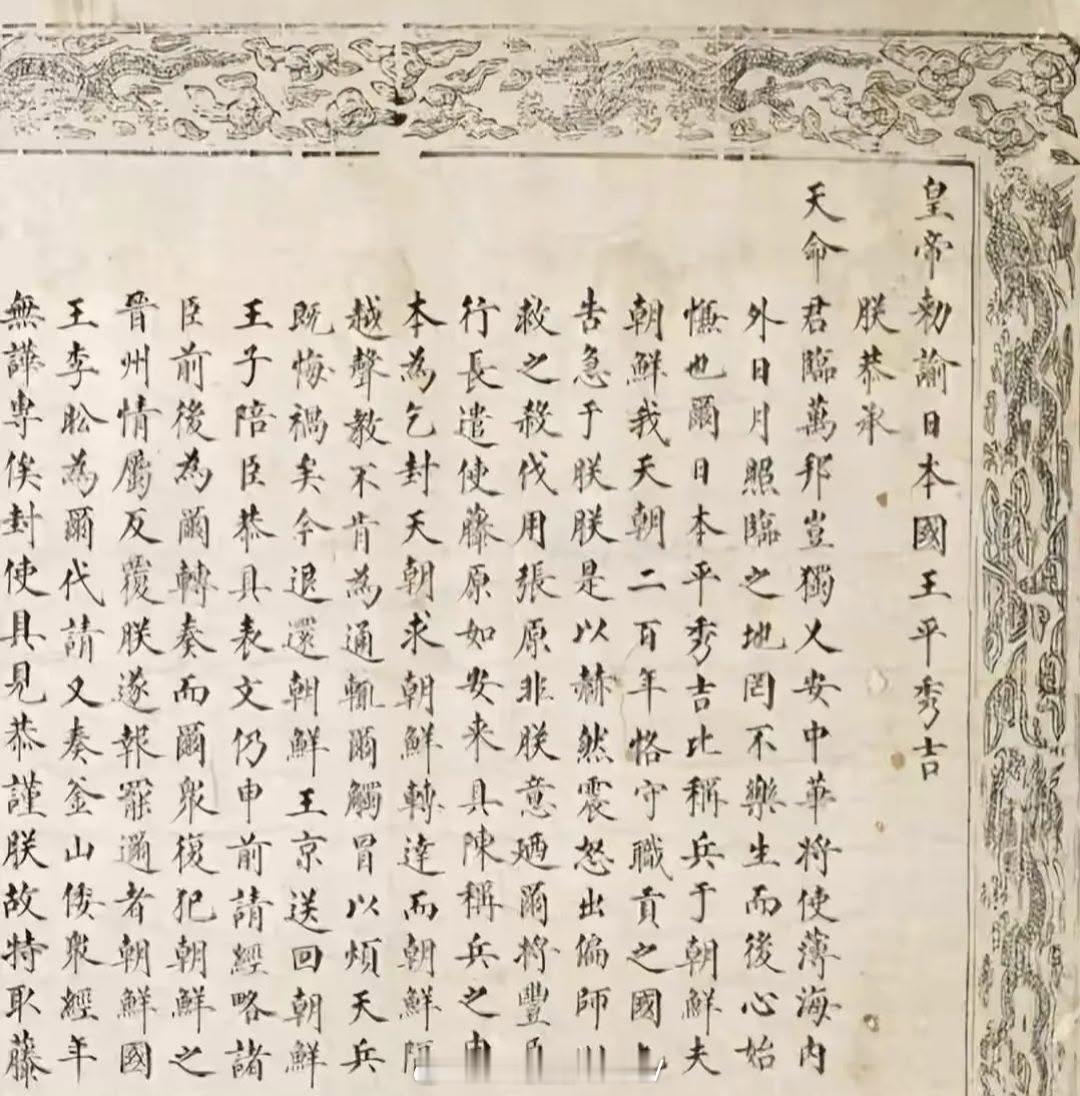 皇帝勅諭日本國王平秀吉
朕恭承
天命君臨萬邦豈獨乂安中華將使薄海內
外日月照臨之地罔不樂生而後心始
慊也爾日本平秀吉比稱兵于朝鮮夫
朝鮮我天朝二百年恪守職貢之國
告急于朕朕是以赫然震怒出偏師
救之殺伐用張原非朕意廼爾將豐臣
行長遣使藤原如安來具陳稱兵之由
本為乞封天朝求朝鮮轉達而朝鮮隔
越聲教不肯為通輒爾觸冒以煩天兵
既悔禍矣今退還朝鮮王京送回朝鮮
王子陪臣恭具表文仍申前請經略諸
臣前後為爾轉奏而爾衆復犯朝鮮之
晉州情屬反覆朕遂報罷邇者朝鮮國
王李昖為爾代請又奏釜山倭衆經年
無譁專俟封使具見恭謹朕故特取藤